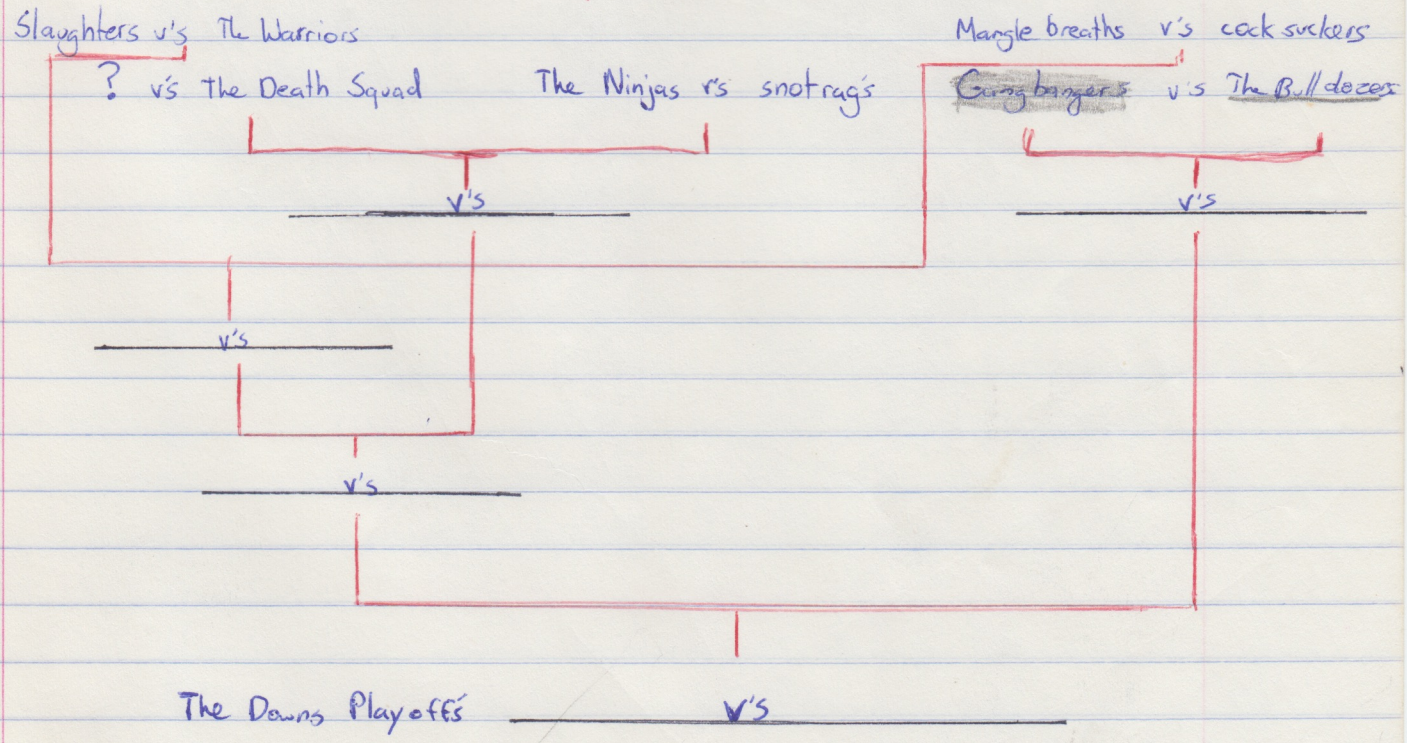 Slaughters v's The Warriors
Mangle breaths v's cock suckers
? v's The Death Squad
The Ninjas v's snotrag's
Gung bangers v's The Bulldozers
v's
v's
v's
v's
The Downs Playoffs v's